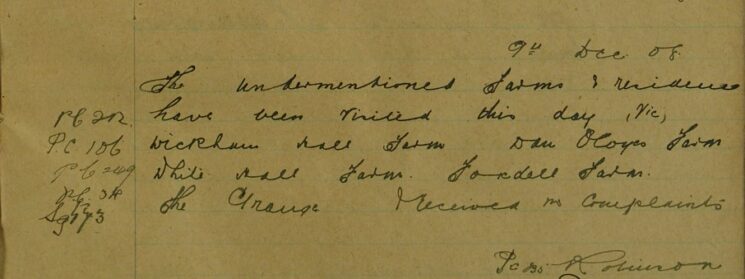 9th Dec 08.
The undermentioned Farms & residence
have been visited this day, (Vic,)
Wickham Hall Farm Dan Farm
White Hall Farm. Foxdell Farm.
The Grange I received no complaints
Pc Robinson
Pc 202.
P.C 106
Pc 249
Pc
Sg